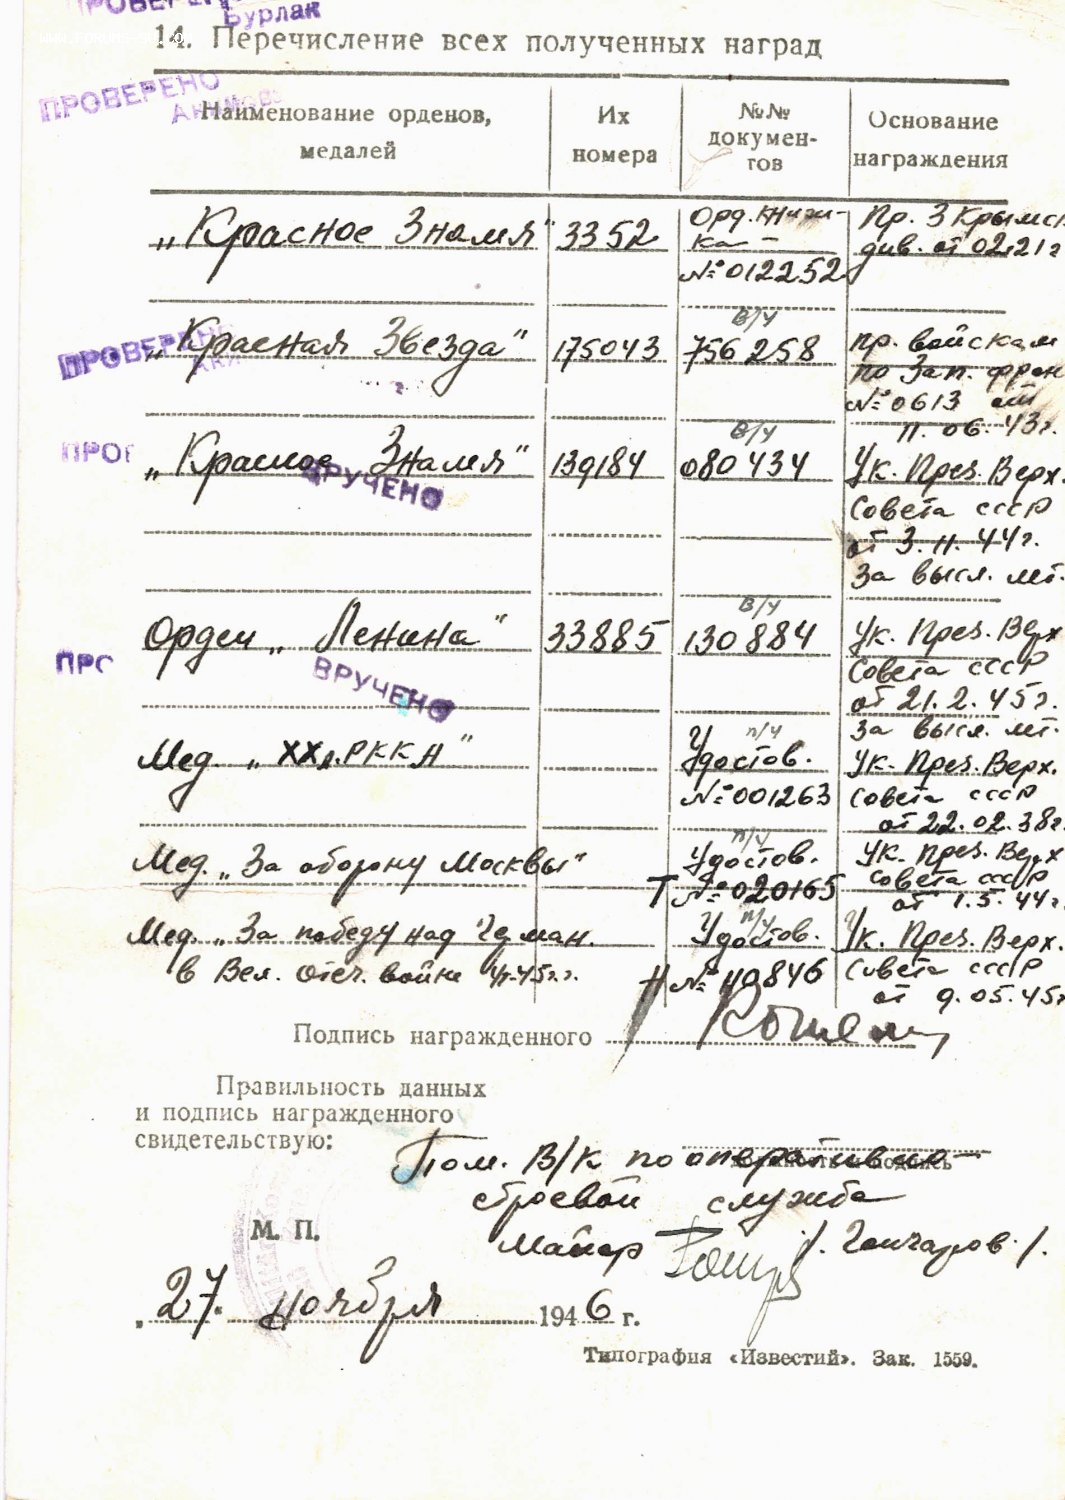 ПРОВЕРЕ
Бурлак
WWW.FORUMS-SU.COM
14. Перечисление всех полученных наград
ПРОВЕРЕНО
Наименование орденов, медалей
Их номера
№№ докумен-
тов
Основание награждения
„Красное Знамя" 3352 Орд. книж-
ка – №012252
Пр. 3 Крымск
див. от 02.21г
ПРОВЕРЕНО
„Красная Звезда" 175043 в/ч 756258
пр. войскам
по Зап. фрон
№0613 от
11.06.43г.
ПРОВ
„Красное Знамя" 139184 в/ч 080434
ВРУЧЕНО
Ук. През. Верх.
Совета СССР
от 3.11.44г.
За высл. лт.
Орден „Ленина" 33885 в/ч 130884
ПРО
ВРУЧЕНО
Ук. През. Верх
Совета СССР
от 21.2.45г.
за высл. лт.
Мед. „XXл.РККА" п/ч Удостов.
№001263
Ук. През. Верх.
Совета СССР
от 22.02.38г.
Мед. „За оборону Москвы" п/ч Удостов.
Т №020165
Ук. През. Верх
Совета СССР
от 1.5.44г.
Мед. „За победу над Герман.
в Вел. Отеч. войне 41-45гг.
п/ч Удостов.
Н №
Ук. През. Верх.
Совета СССР
от 9.05.45г
Подпись награжденного
Правильность данных
и подпись награжденного
свидетельствую:
Пом. В/К по оперативно-
подпись
строевой службе
М. П.
Майор /. Гончаров./.
„27" ноября 1946 г.
Типография «Известий». Зак. 1559.